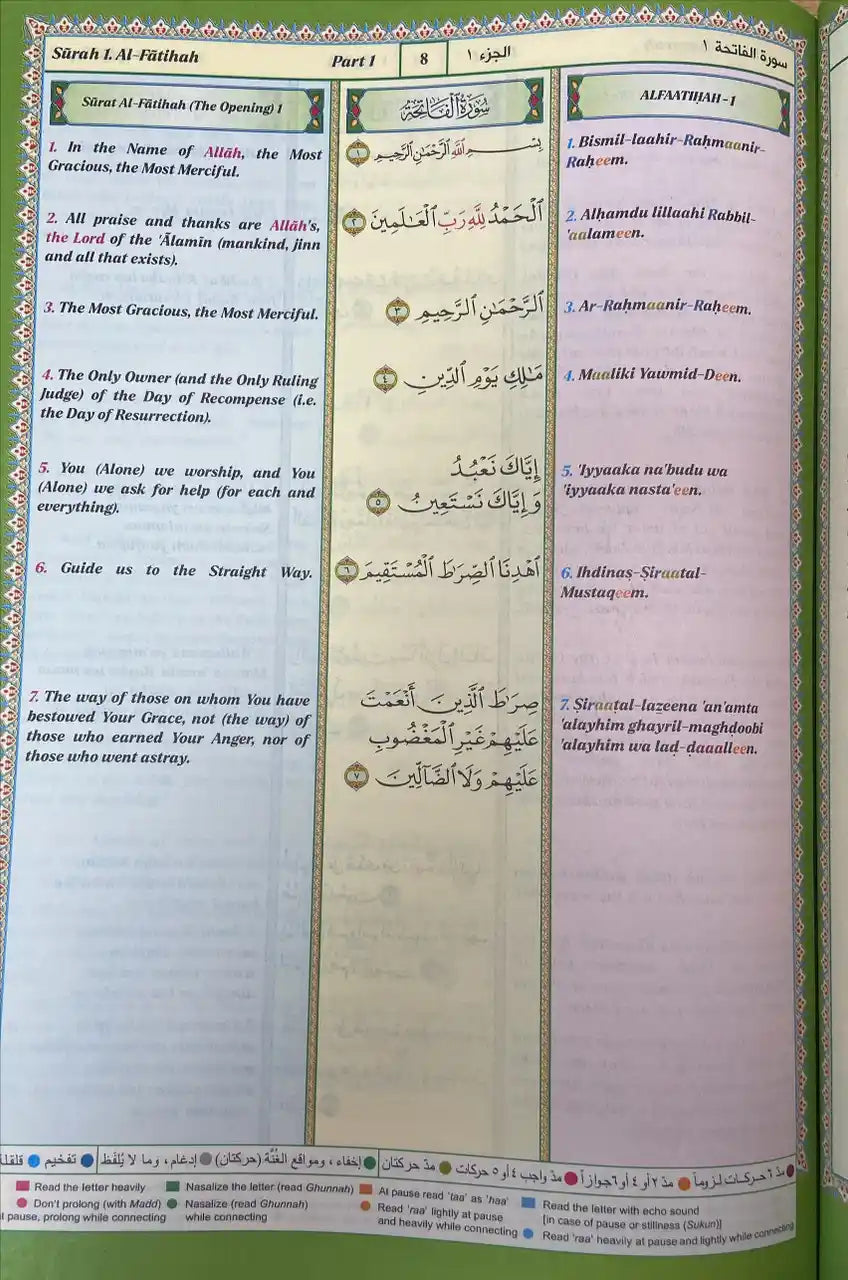 Sūrah 1. Al-Fātihah
Part 1
8
الجزء ١
سورة الفاتحة ١
Sūrat Al-Fātihah (The Opening) 1
1. In the Name of Allāh, the Most
Gracious, the Most Merciful.
2. All praise and thanks are Allāh's,
the Lord of the 'Ālamīn (mankind, jinn
and all that exists).
3. The Most Gracious, the Most Merciful.
4. The Only Owner (and the Only Ruling
Judge) of the Day of Recompense (i.e.
the Day of Resurrection).
5. You (Alone) we worship, and You
(Alone) we ask for help (for each and
everything).
6. Guide us to the Straight Way.
7. The way of those on whom You have
bestowed Your Grace, not (the way) of
those who earned Your Anger, nor of
those who went astray.
سُورَةُ الْفَاتِحَةِ
بِسْمِ اللَّهِ الرَّحْمَٰنِ الرَّحِيمِ ١
الْحَمْدُ لِلَّهِ رَبِّ الْعَالَمِينَ ٢
الرَّحْمَٰنِ الرَّحِيمِ ٣
مَالِكِ يَوْمِ الدِّينِ ٤
إِيَّاكَ نَعْبُدُ
وَإِيَّاكَ نَسْتَعِينُ ٥
اهْدِنَا الصِّرَاطَ الْمُسْتَقِيمَ ٦
صِرَاطَ الَّذِينَ أَنْعَمْتَ
عَلَيْهِمْ غَيْرِ الْمَغْضُوبِ
عَلَيْهِمْ وَلَا الضَّالِّينَ ٧
ALFAATIḤAH-1
1. Bismil-laahir-Raḥmaanir-
Raḥeem.
2. Alḥamdu lillaahi Rabbil-
'aalameen.
3. Ar-Raḥmaanir-Raḥeem.
4. Maaliki Yawmid-Deen.
5. 'Iyyaaka na'budu wa
'iyyaaka nasta'een.
6. Ihdinaṣ-Ṣiraatal-
Mustaqeem.
7. Ṣiraatal-lazeena 'an'amta
'alayhim ghayril-maghḍoobi
'alayhim wa laḍ-ḍaaalleen.
مدّ ٦ حركات لزوماً مدّ ٢ أو ٤ أو ٦ جوازاً مدّ واجب ٤ أو ٥ حركات مدّ حركتان إخفاء، ومواقع الغُنَّة (حركتان) إدغام، وما لا يُلفَظ تفخيم قلقلة
Read the letter heavily
Don't prolong (with Madd)
pause, prolong while connecting
Nasalize the letter (read Ghunnah)
Nasalize (read Ghunnah)
while connecting
At pause read 'taa' as 'haa'
Read 'raa' lightly at pause
and heavily while connecting
Read the letter with echo sound
[in case of pause or stillness (Sukun)]
Read 'raa' heavily at pause and lightly while connecting